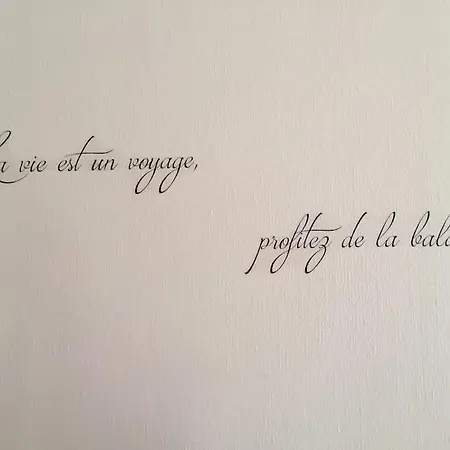 La vie est un voyage,
profitez de la